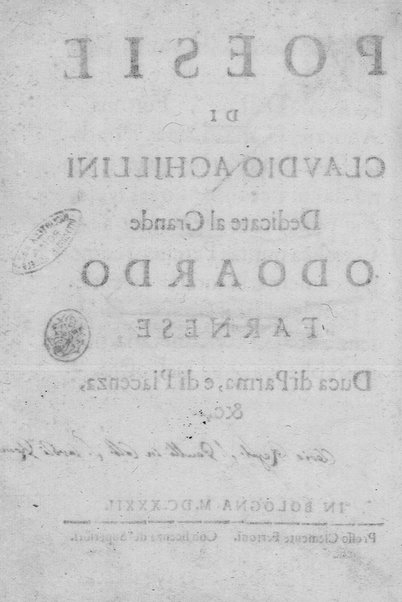 POESIE
DI
CLAVDIO ACHILLINI
Dedicate al Grande
ODOARDO
FARNESE
Duca di Parma, e di Piacenza,
&c.
IN BOLOGNA M.DC.XXXII.
Presso Clemente Ferroni. Con licenza de' Superiori.